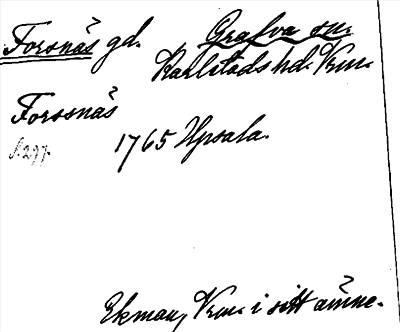 Forsnäs gd. Grafva sn.
Karlstads hd. Krm.
Forssnäs
1765 Upsala.
s. 297.
Ekman, Krm. i sitt ämne.